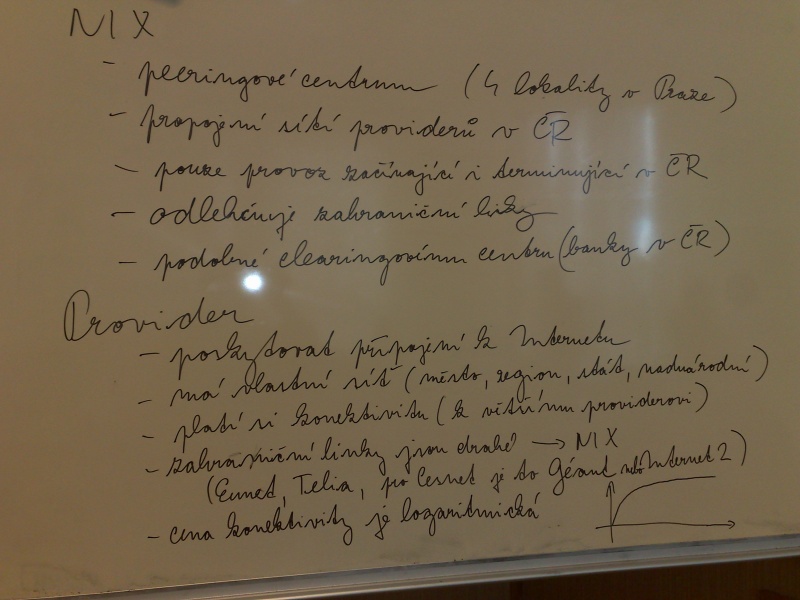 NIX
- peeringové centrum (4 lokality v Praze)
- propojení sítí providerů v ČR
- pouze provoz začínající i terminující v ČR
- odlehčuje zahraniční linky
- podobné clearingovému centru (banky v ČR)
Provider
- poskytovat připojení k Internetu
- má vlastní síť (město, region, stát, nadnárodní)
- platí si konektivitu (k většímu providerovi)
- zahraniční linky jsou drahé → NIX
(Eunet, Telia, pro Cesnet je to Géant nebo Internet 2)
- cena konektivity je logaritmická